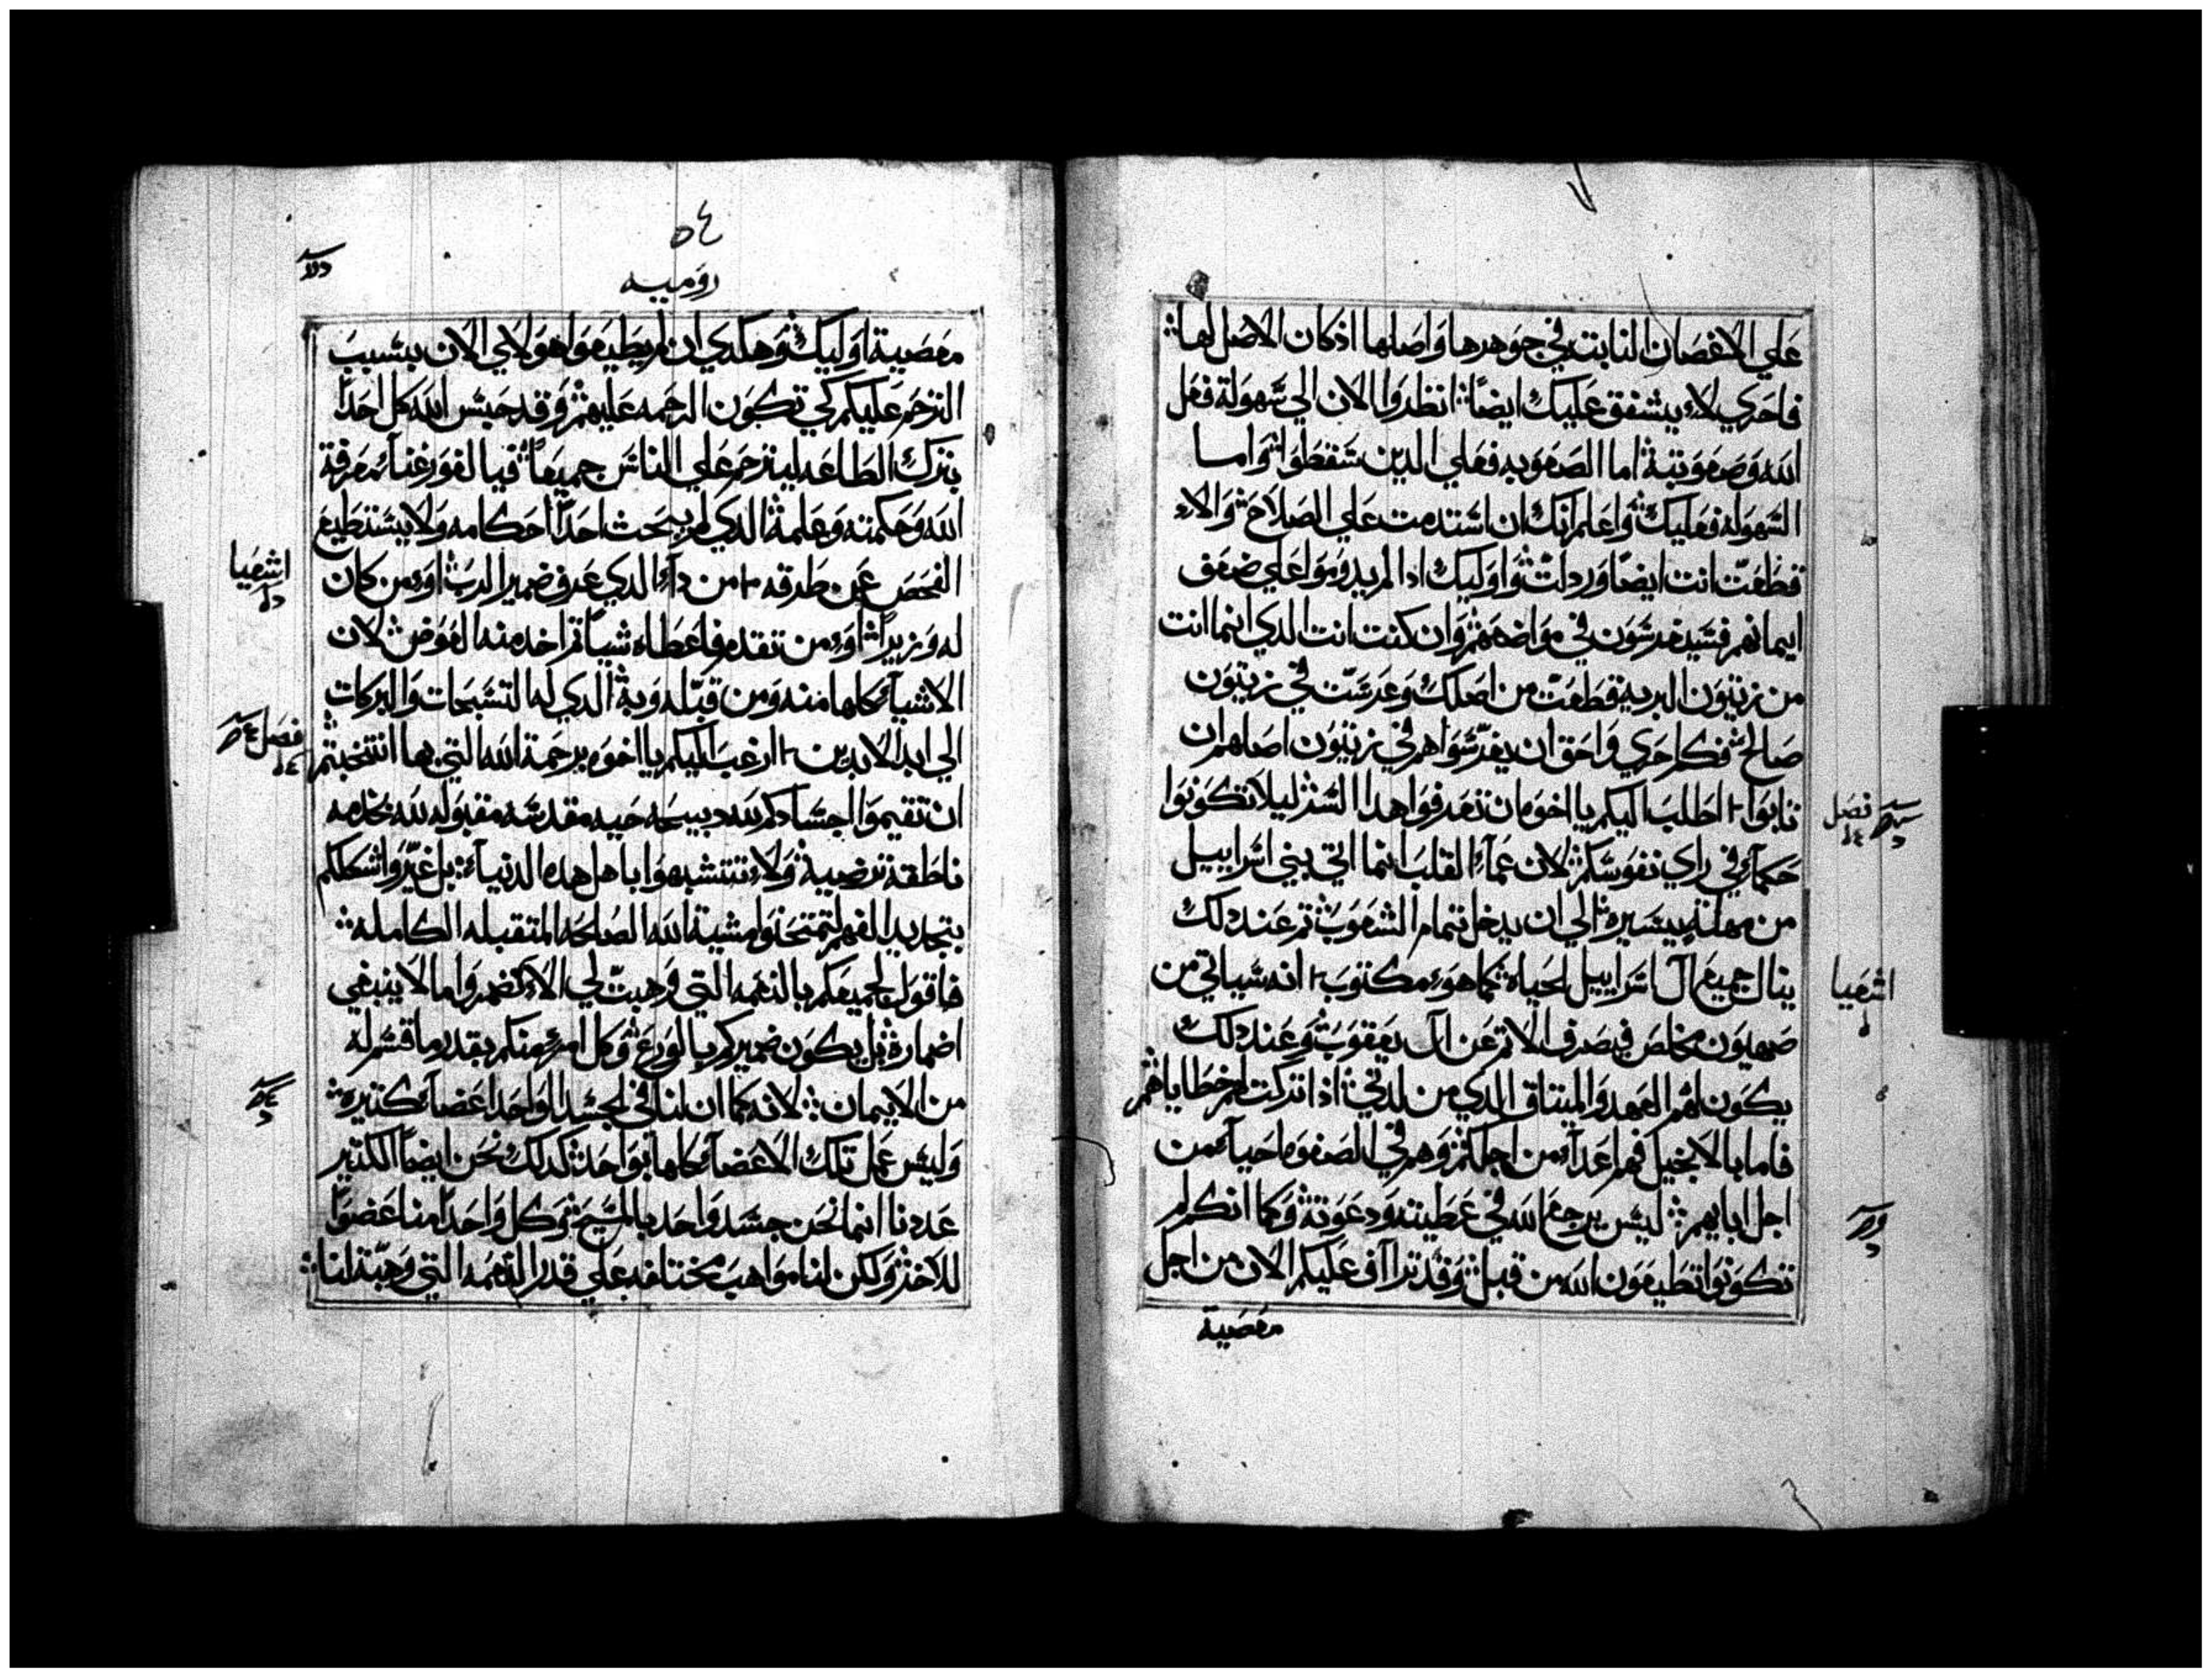 علي الاغصان النابت في جوهرها واصلها اذ كان الاصل لها
فاحري لا يشفق عليك ايضا انظروا الان الي سهولة فعل
الله وصعوبته اما الصعوبه فعلي الدين سقطوا واما
السهوله فعليك واعلم انك ان استدمت علي الصلاح والا
قطعت انت ايضا وردلت واوليك ادا لم يدوموا علي ضعف
ايمانهم فسيغرسون في مواضعهم وان كنت انت الدي انما انت
من زيتون البريه قطعت من اصلك وغرست في زيتون
صالح فكم احري واحق ان يغرسوا هم في زيتون اصلهم ان
تابوا اطلب اليكم يا اخوه ان تعرفوا هدا السر ليلا تكونوا
حكمآء في راي نفوسكم لان عمآء القلب انما اتي بني اسراييل
من مهلة يسيره الي ان يدخل تمام الشعوب ثم عند دلك
ينال جميع آل اسراييل الحياه كما هو مكتوب انه سياتي من
صهيون مخلص فيصرف الاثم عن آل يعقوب وعند دلك
يكون لهم العهد والميثاق الدي من لدني ادا تركت لهم خطاياهم
فاما بالانجيل فهم اعدآء من اجلكم وهم في الصفوه احبآء من
اجل ابايهم ليس يرجع الله في عطيته ودعوته وكما انكم لم
تكونوا تطيعون الله من قبل وقد تراآف عليكم الان من اجل
معصية
فصل
اشعيا
٥٤
روميه
معصية اوليك وهكدي ان لم يطيعوا هولاي الان بسبب
الترحم عليكم كي تكون الرحمه عليهم وقد حبس الله كل احدا
بترك الطاعه ليترحم علي الناس جميعا فيا لغور غنآء معرفة
الله وحكمته وعلمه الدي لم يبحث احدا احكامه ولا يستطيع
الفحص عن طرقه من دآء الدي عرف ضمير الرب او من كان
له وزيرا او من تقدم فاعطاه شيا ثم اخد منه العوض لان
الاشيآء كلها منه ومن قبله وبه الدي له التسبحات والبركات
الي ابد الابدين ارغب اليكم يا اخوه برحمة الله التي بها انتخبتم
ان تقيموا اجسادكم لله دبيحه حيه مقدسه مقبوله لله بخدمه
ناطقة ترضيه ولا تتشبهوا باهل هده الدنيآء بل غيروا شكلكم
بتجديد الفهم لتمتحنوا مشية الله الصالحه المتقبله الكامله
فاقول لجميعكم بالنعمه التي وهبت لي الا تضمروا ما لا ينبغي
اضماره بل يكون ضميركم بالورع وكل امرء منكم بقدر ما قسم له
من الايمان لانه كما ان لنا في الجسد الواحد اعضآء كثيره
وليس عمل تلك الاعضآء كلها بواحد كدلك نحن ايضا الكثير
عددنا انما نحن جسد واحد بالمسيح وكل واحدا منا عضوا
للاخر ولكن لنا مواهب مختلفه علي قدر النعمه التي وهبة لنا
اشعيا
فصل